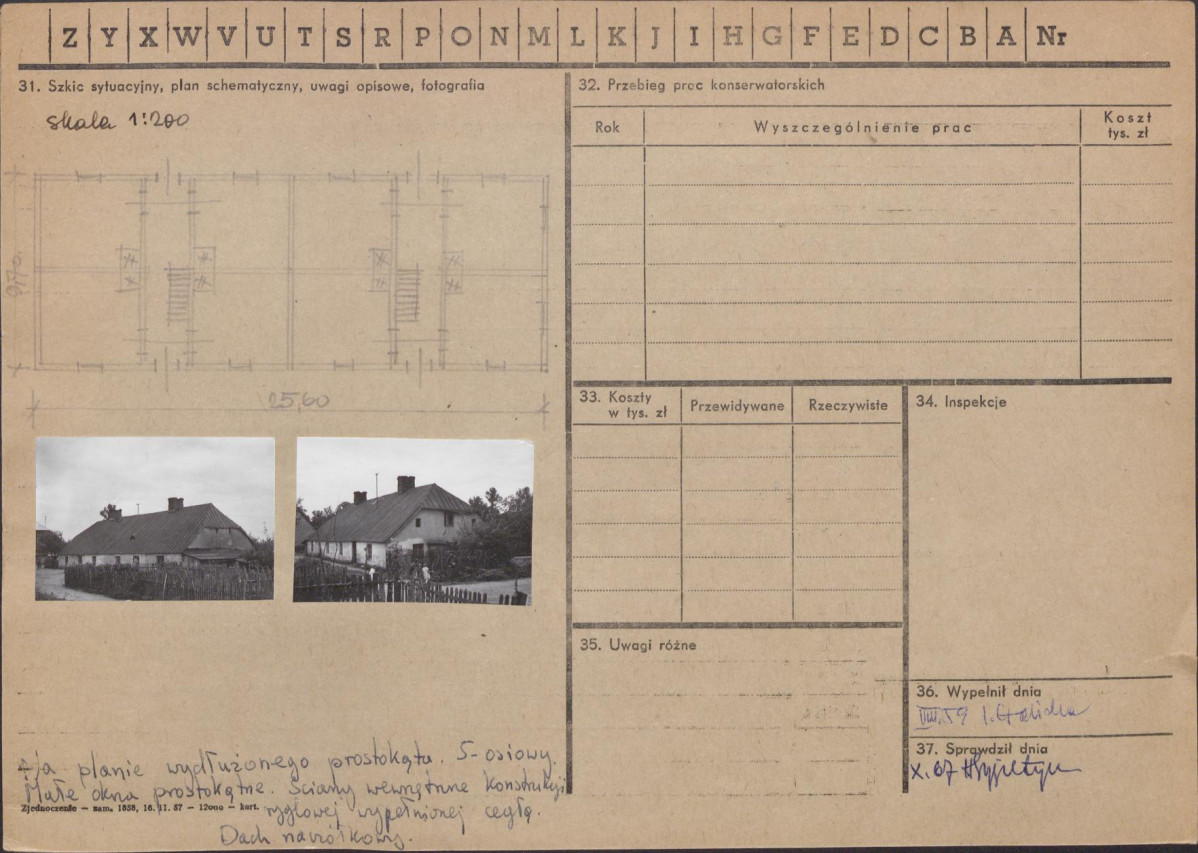 Z Y X W V U T S R P O N M L K J I H G F E D C B A Nr
31. Szkic sytuacyjny, plan schematyczny, uwagi opisowe, fotografia
skala 1:200
9,70
25,60
Na planie wydłużonego prostokąta. 5-osiowy.
Małe okna prostokątne. Ściany wewnętrzne konstrukcji
Zjednoczenie — zam. 1858, 16. 11. 57 — 12000 — kart.
ryglowej wypełnionej cegłą.
Dach naczółkowy.
32. Przebieg prac konserwatorskich
Rok
Wyszczególnienie prac
Koszt
tys. zł
33. Koszty
w tys. zł
Przewidywane
Rzeczywiste
34. Inspekcje
35. Uwagi różne
36. Wypełnił dnia
VIII.59 I. Galicka
37. Sprawdził dnia
X.67